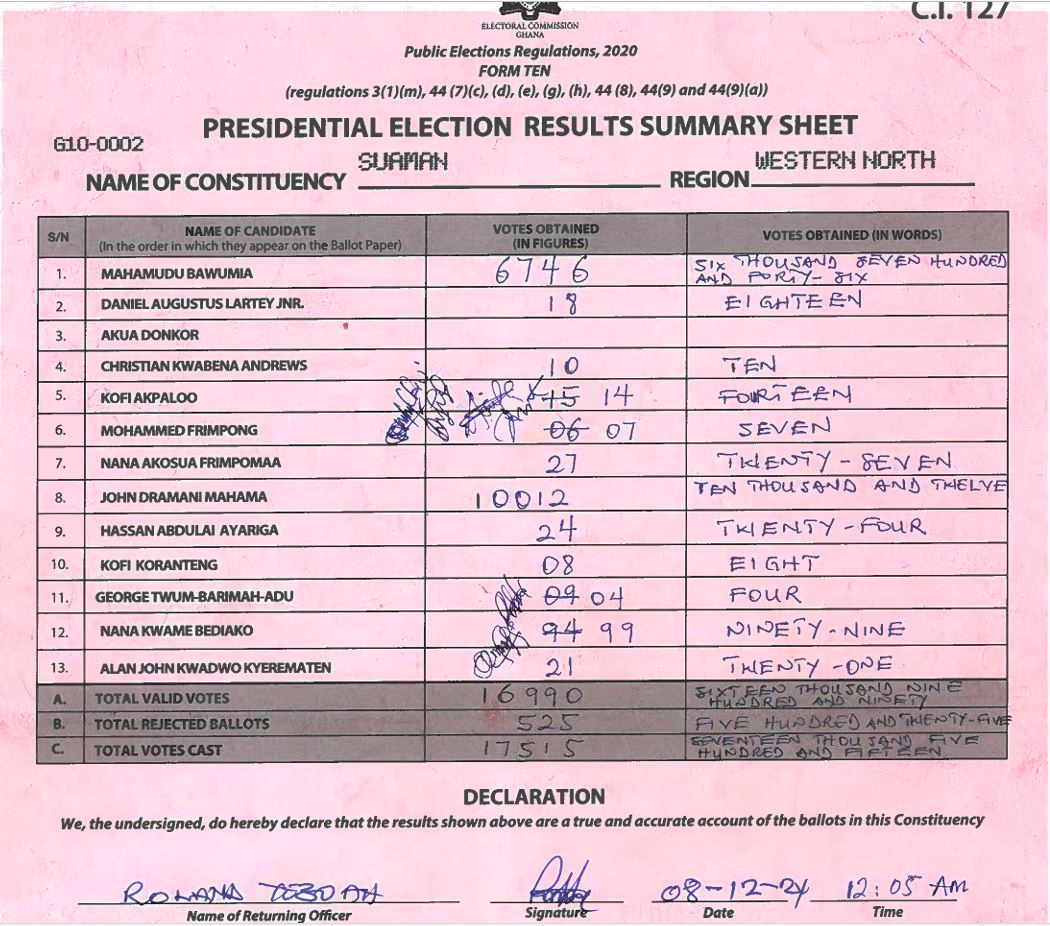 C.I. 127
ELECTORAL COMMISSION
GHANA
Public Elections Regulations, 2020
FORM TEN
(regulations 3(1)(m), 44 (7)(c), (d), (e), (g), (h), 44 (8), 44(9) and 44(9)(a))
PRESIDENTIAL ELECTION RESULTS SUMMARY SHEET
G10-0002
NAME OF CONSTITUENCY SUAMAN REGION WESTERN NORTH
S/N NAME OF CANDIDATE (In the order in which they appear on the Ballot Paper) VOTES OBTAINED (IN FIGURES) VOTES OBTAINED (IN WORDS)
1. MAHAMUDU BAWUMIA 6746 SIX THOUSAND SEVEN HUNDRED AND FORTY-SIX
2. DANIEL AUGUSTUS LARTEY JNR. 18 EIGHTEEN
3. AKUA DONKOR
4. CHRISTIAN KWABENA ANDREWS 10 TEN
5. KOFI AKPALOO 15 14 FOURTEEN
6. MOHAMMED FRIMPONG 06 07 SEVEN
7. NANA AKOSUA FRIMPOMAA 27 TWENTY-SEVEN
8. JOHN DRAMANI MAHAMA 10012 TEN THOUSAND AND TWELVE
9. HASSAN ABDULAI AYARIGA 24 TWENTY-FOUR
10. KOFI KORANTENG 08 EIGHT
11. GEORGE TWUM-BARIMAH-ADU 09 04 FOUR
12. NANA KWAME BEDIAKO 94 99 NINETY-NINE
13. ALAN JOHN KWADWO KYEREMATEN 21 TWENTY-ONE
A. TOTAL VALID VOTES 16990 SIXTEEN THOUSAND NINE HUNDRED AND NINETY
B. TOTAL REJECTED BALLOTS 525 FIVE HUNDRED AND TWENTY-FIVE
C. TOTAL VOTES CAST 17515 SEVENTEEN THOUSAND FIVE HUNDRED AND FIFTEEN
DECLARATION
We, the undersigned, do hereby declare that the results shown above are a true and accurate account of the ballots in this Constituency
ROLAND 08-12-24 12:05 AM
Name of Returning Officer Signature Date Time